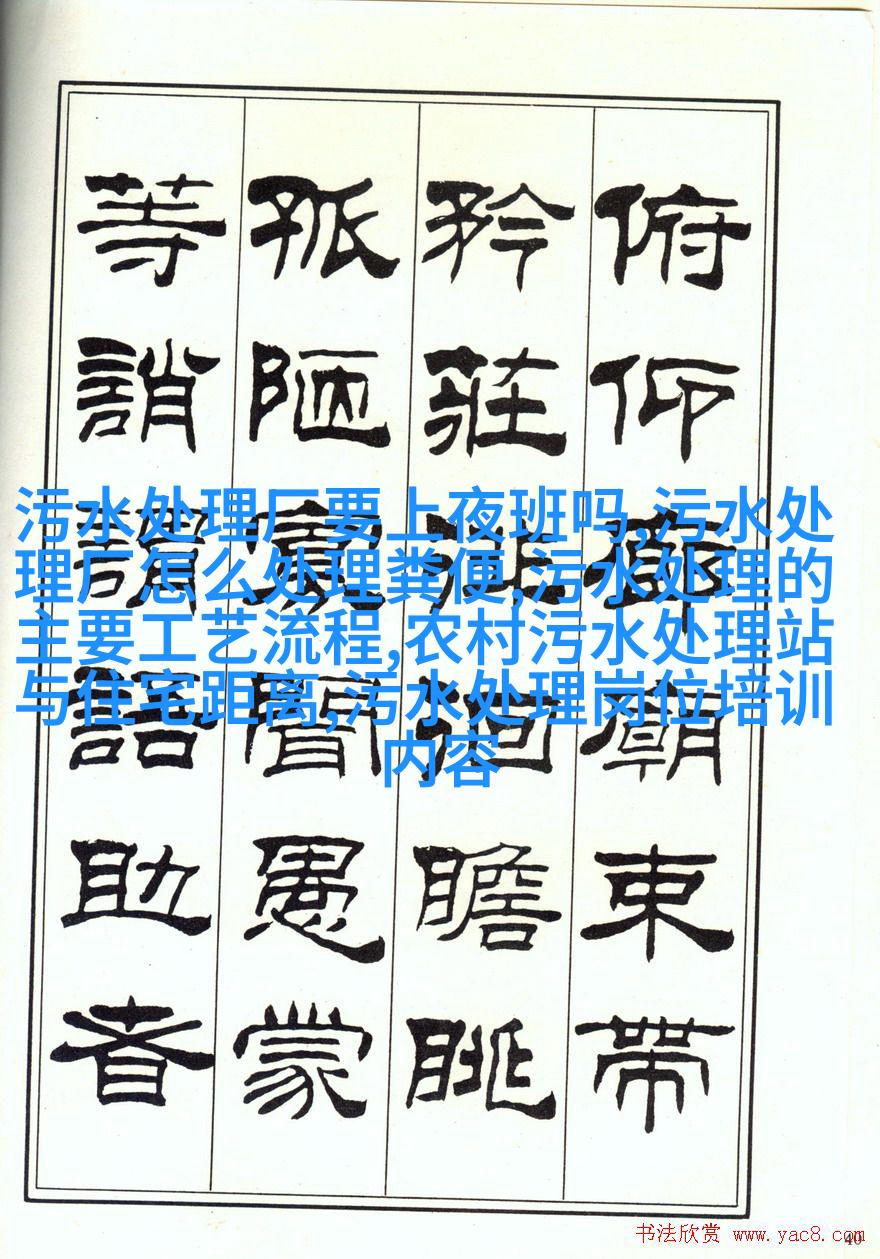 俯仰廊廟束帶
矜莊徘徊瞻眺
孤陋寡聞愚蒙
等誚謂語助者
污水处理厂要上夜班吗,污水处
理厂怎么处理粪便,污水处理的
主要工艺流程,农村污水处理站
与住宅距离,污水处理岗位培训
内容
书法欣赏 www.yac8.com
40